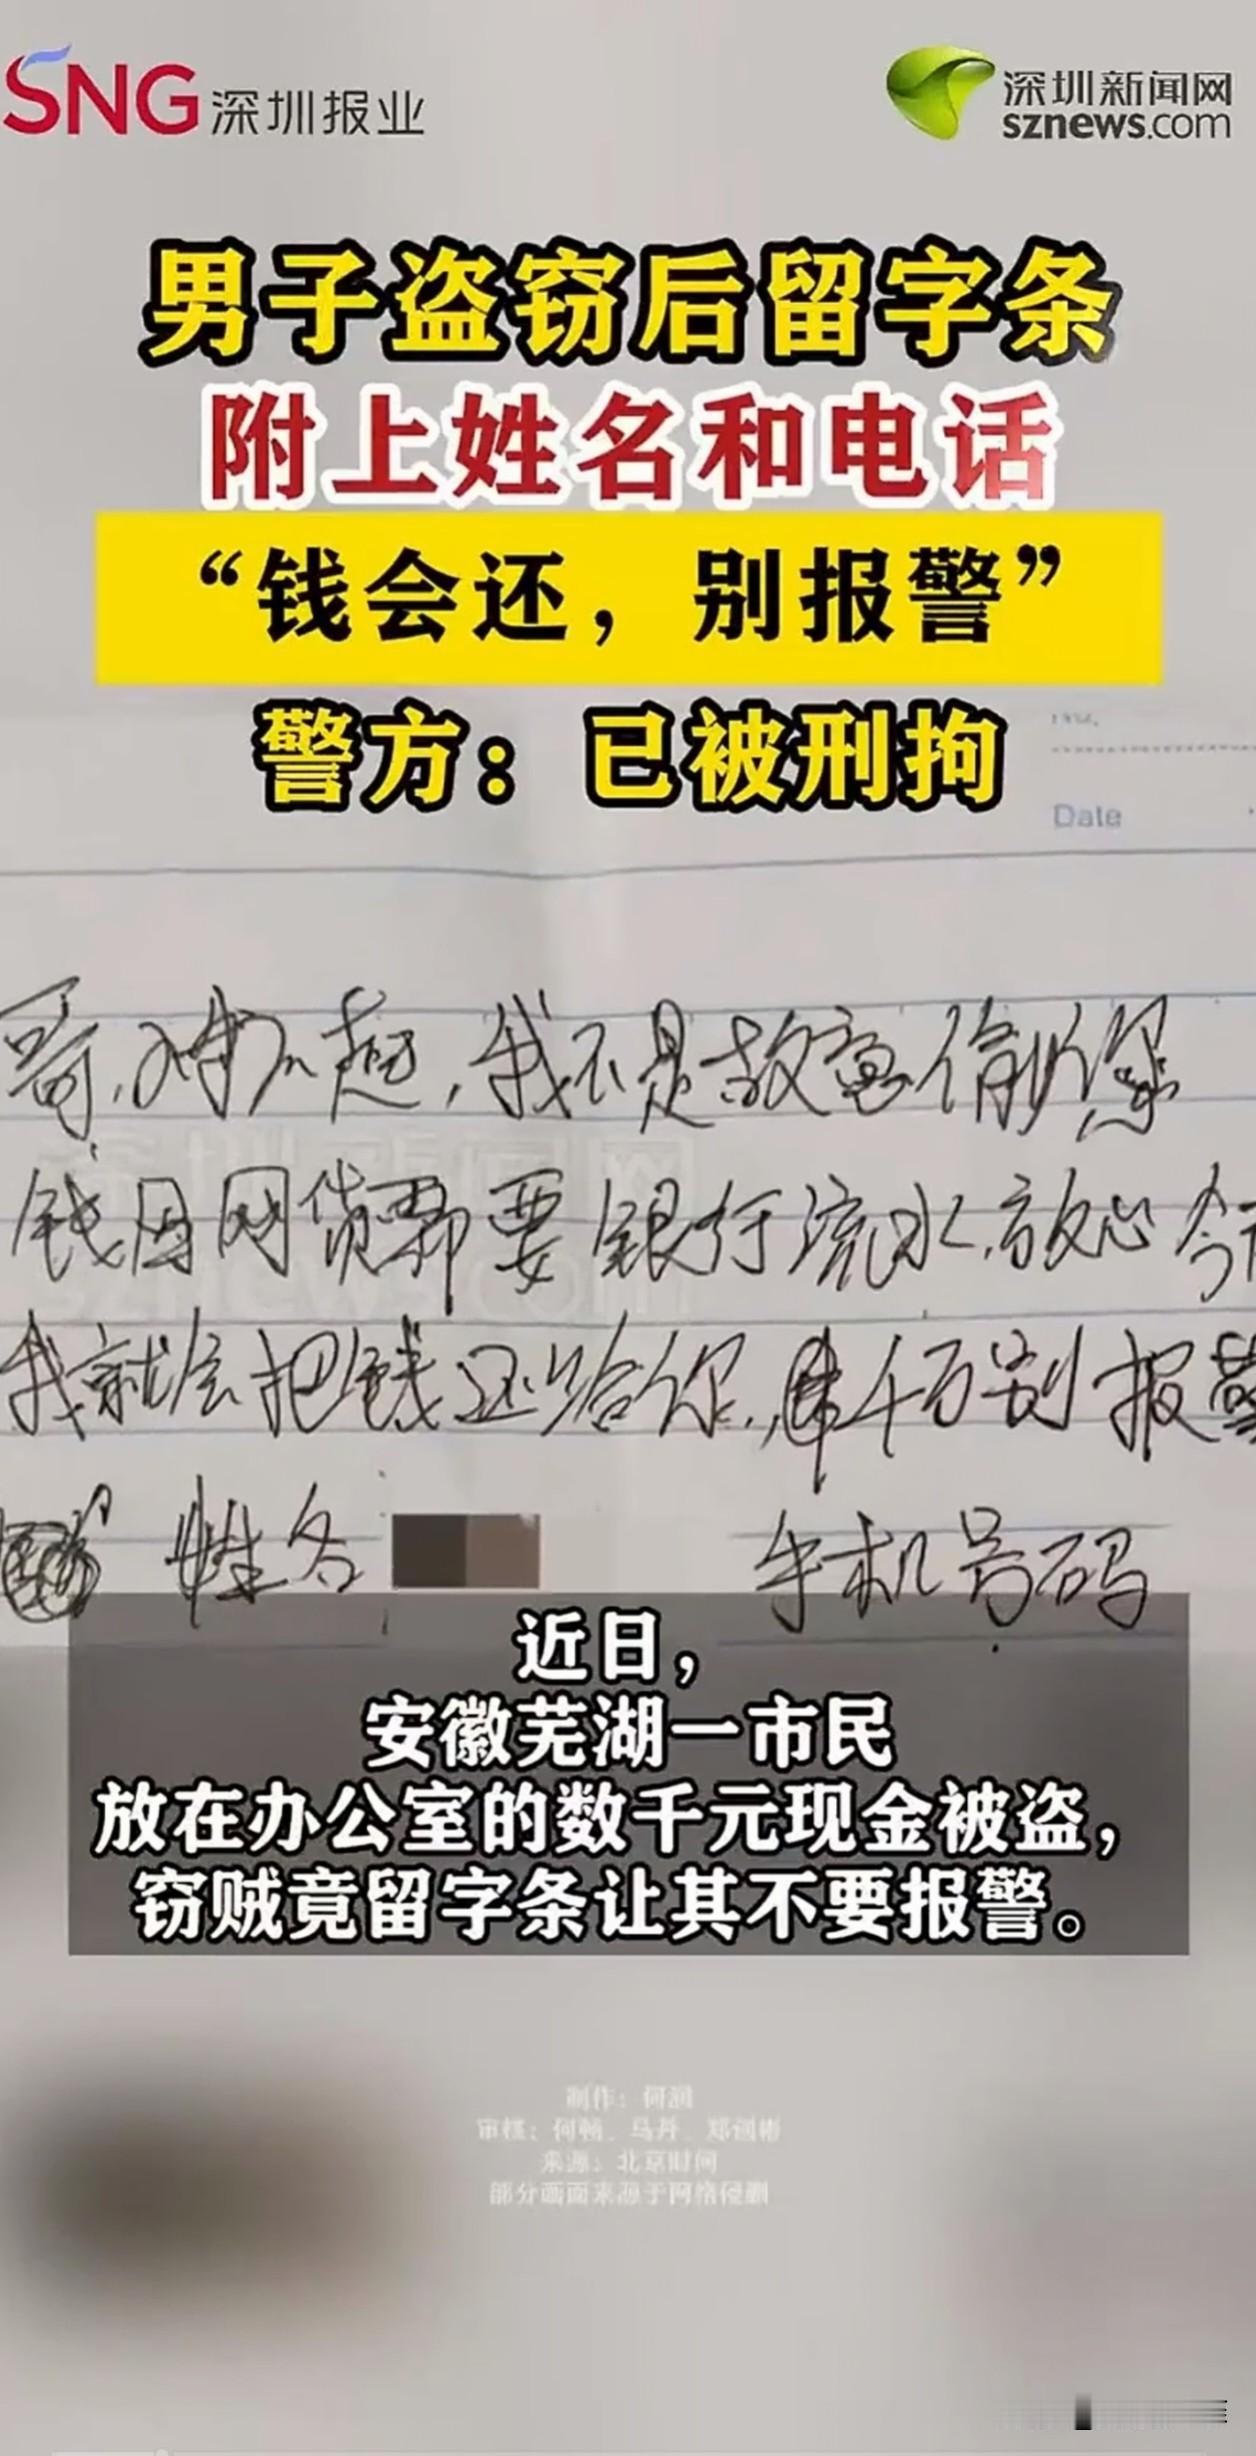 SNG 深圳报业
深圳新闻网
sznews.com
男子盗窃后留字条
附上姓名和电话
“钱会还，别报警”
警方：已被刑拘
Date
哥，对不起，我不是故意偷你
钱因网贷需要银行流水，放心今
我就会把钱还给你，千万别报警
姓名 手机号码
近日，
安徽芜湖一市民
放在办公室的数千元现金被盗，
窃贼竟留字条让其不要报警。
制作：何润
审核：何畅、马丹、郑创彬
来源：北京时间
部分画面来源于网络侵删